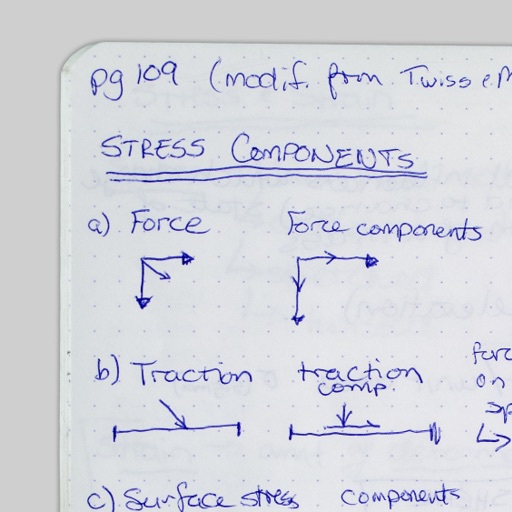 pg 109 (modif. from Twiss e.M
STRESS COMPONENTS
a) Force Force components
b) Traction traction comp.
on
c) Surface stress components